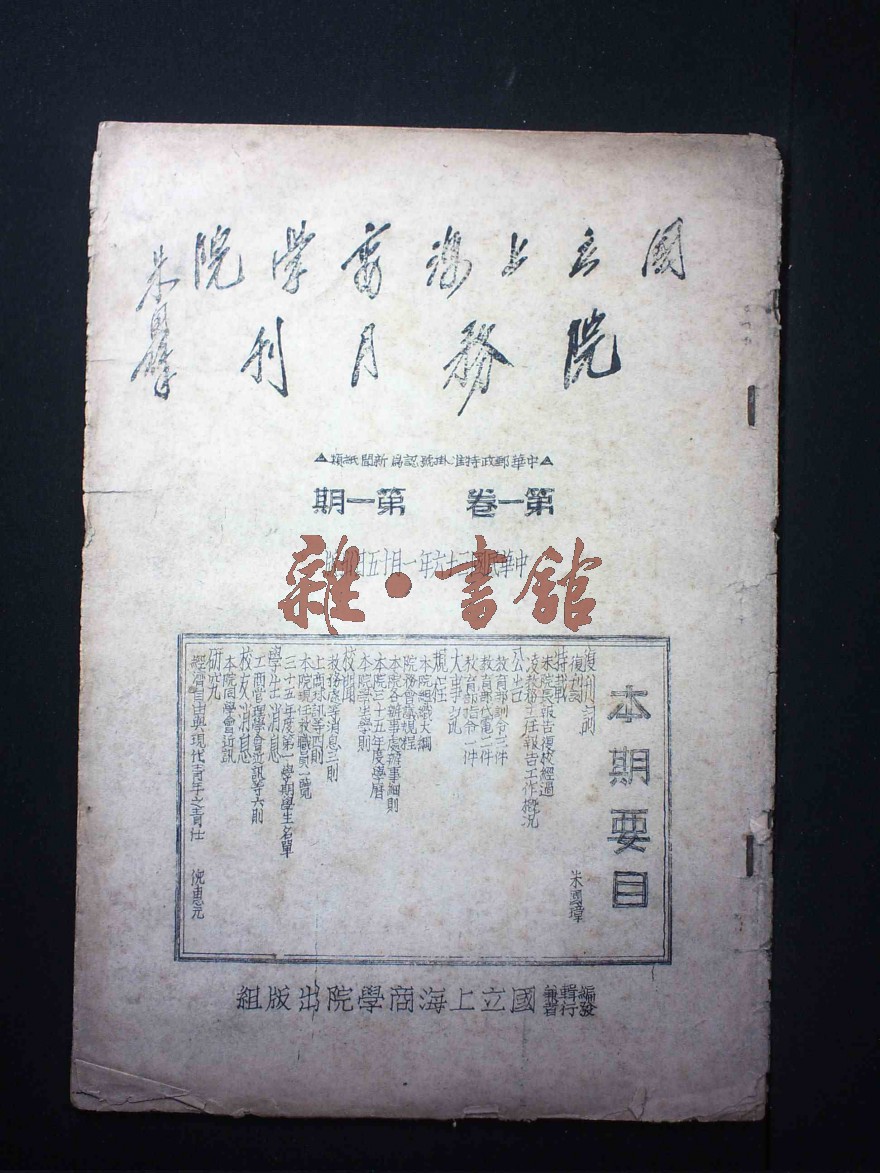 國立上海商學院
院務月刊
朱
▲中華郵政特准掛號認爲新聞紙類▲
第一卷　第一期
中華民國三十六年一月十五日出版
雜·書館
本期要目
復刊詞　朱國璋
特載
本院長報告復校經過
凌教務主任報告工作概況
公告
教育部訓令三件
教育部代電二件
教育部指令一件
大事記
規程
本院組織大綱
院務會議規程
本院各辦事處辦事細則
本院三十五年度學曆
本院學生學則
校聞
教務處等消息三則
上商球訊等四則
本院現任教職員一覽
三十五年度第一學期學生名單
學生消息
工商管理學會近訊等六則
校友消息
本院同學會近訊
研究
經濟自由與現代青年之責任　倪惠元
編輯兼發行者
國立上海商學院出版組